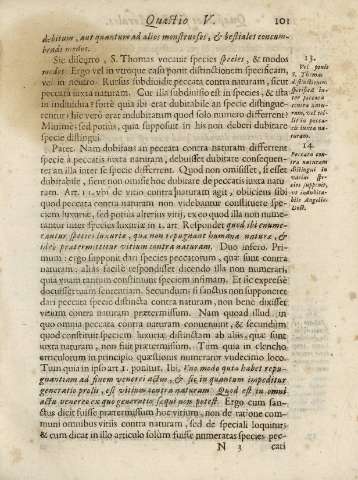 Quæstio V. 101
debitum, aut quantum ad alios monstruosos, & bestiales concum-
bendi modos.
Sic disquro, S. Thomas vocauit species species, & modos
modos. Ergo vel in vtroque casu ponit distinctionem specificam,
vel in neutro. Rursus subdiuide peccata contra naturam, sicut
peccata iuxta naturam. Cur illa subdiuisio est in species, & ista
in indiuidua? forte quia ibi erat dubitabile an specie distingue-
rentur; hic verò erat indubitatum quod solo numero different?
Minimè: sed potius, quia supposuit in his non deberi dubitare
specie distingui.
Patet. Nam dubitans an peccata contra naturam differrent
specie à peccatis iuxta naturam, debuisset dubitare consequen-
ter an illa inter se specie differrent. Quod non omisisset, si esset
dubitabile, sicut non omisit hoc dubitare de peccatis iuxta natu-
ram. Art. 11. vbi de vitio contra naturam agit, obiiciens sibi
quod peccata contra naturam non videbantur constituere spe-
ciem luxuriæ, sed potius alterius vitij, ex eo quod illa non nume-
rantur inter species luxuriæ in 1. ar. Respondet quod ibi enume-
rantur species luxuriæ, quæ non repugnant humanæ naturæ, &
ideò prætermittitur vitium contra naturam. Duo infero. Pri-
mum: ergo supponit dari species peccatorum, quæ sunt contra
naturam: alias facilè respondisset dicendo illa non numerari,
quia vnam tantum constituunt speciem infimam. Et sic expressè
docuisset tuam sententiam. Secundum: si sanctus non supponeret
dari peccata specie distincta contra naturam, non benè dixisset
vitium contra naturam prætermissum. Nam quoad illud in
quo omnia peccata contra naturam conueniunt, & secundum
quod constituunt speciem luxuriæ distinctam ab alijs, quæ sunt
iuxta naturam, non fuit prætermissum. Tum quia in elencho
articulorum in principio quæstionis numeratur vndecimo loco.
Tum quia in ipso art 1. ponitur. Ibi, Vno modo quia habet repu-
gnantiam ad finem venerei actus, & sic in quantum impeditur
generatio prolis, est vitium contra naturam. Quod est in omni
actu venereo ex quo generatio sequi non potest. Ergo cum san-
ctus dicit fuisse prætermissum hoc vitium, non de ratione com-
muni omnibus vitiis contra naturam, sed de speciali loquitur;
& cum dicat in illo articulo solum fuisse numeratas species pec-
N 3 cati
13.
Vel ponit
S. Thomas
distinctionem
specificam in-
ter peccata
contra natu-
ram, vel tol-
lit in pecca-
tis iuxta na-
turam.
14.
Peccata con-
tra naturam
distingui in
varias spe-
cies supponit,
vt indubita-
bile Angelic.
Doct.